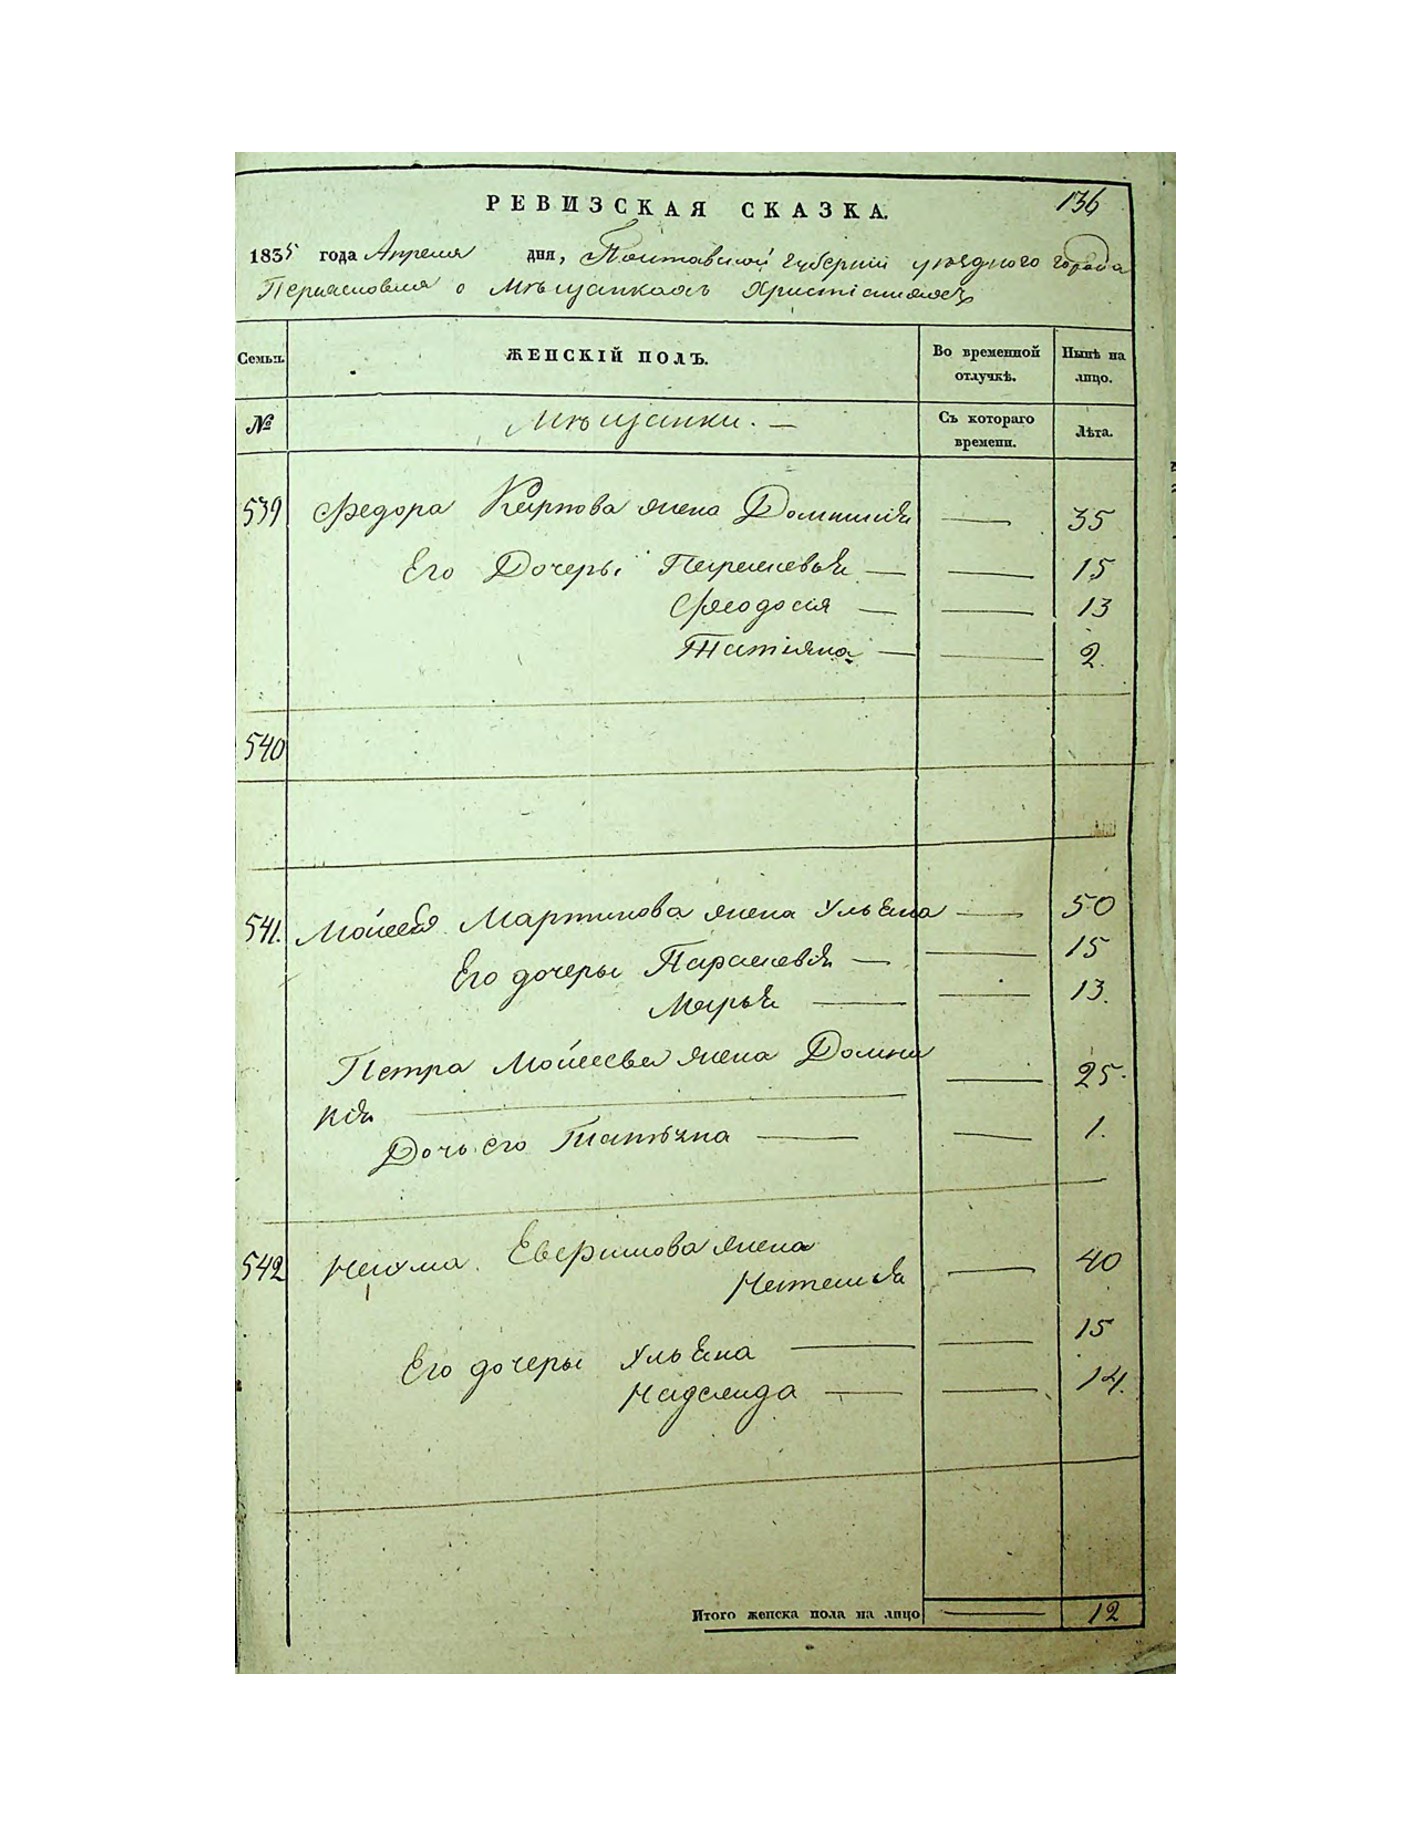 РЕВИЗСКАЯ СКАЗКА.
136
1835 года Апреля дня, Полтавской губернии уѣзднаго города
Переяславля о Мѣщанкахъ Христіанахъ
Семьи.
ЖЕНСКІЙ ПОЛЪ.
Во временной отлучкѣ.
Нынѣ на лицо.
№
Мѣщанки. —
Съ котораго времени.
Лѣта.
539 Федора Карпова жена Домникія — 35
Его Дочеры Параскевія — — 15
Феодосія — — 13
Татіяна — — 2.
540
541. Мойсея Мартинова жена Ульяна — 50
Его дочеры Параскевія — — 15
Марья — — 13.
Петра Мойсеева жена Домни — 25.
кія —
Дочь его Татьяна — — 1.
542 Наума жена — 40
Наталія
Его дочеры Ульяна — — 15
Надежда — — 14.
Итого женска пола на лицо — 12